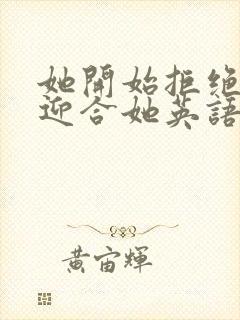 她開始拒絕
迎合她英語
黃宙輝